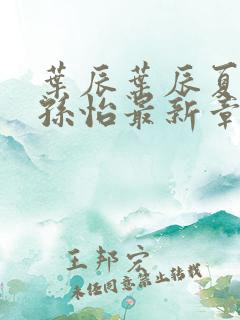 葉辰葉辰夏
孫怡最新章
王邦宏
未经同意禁止转载